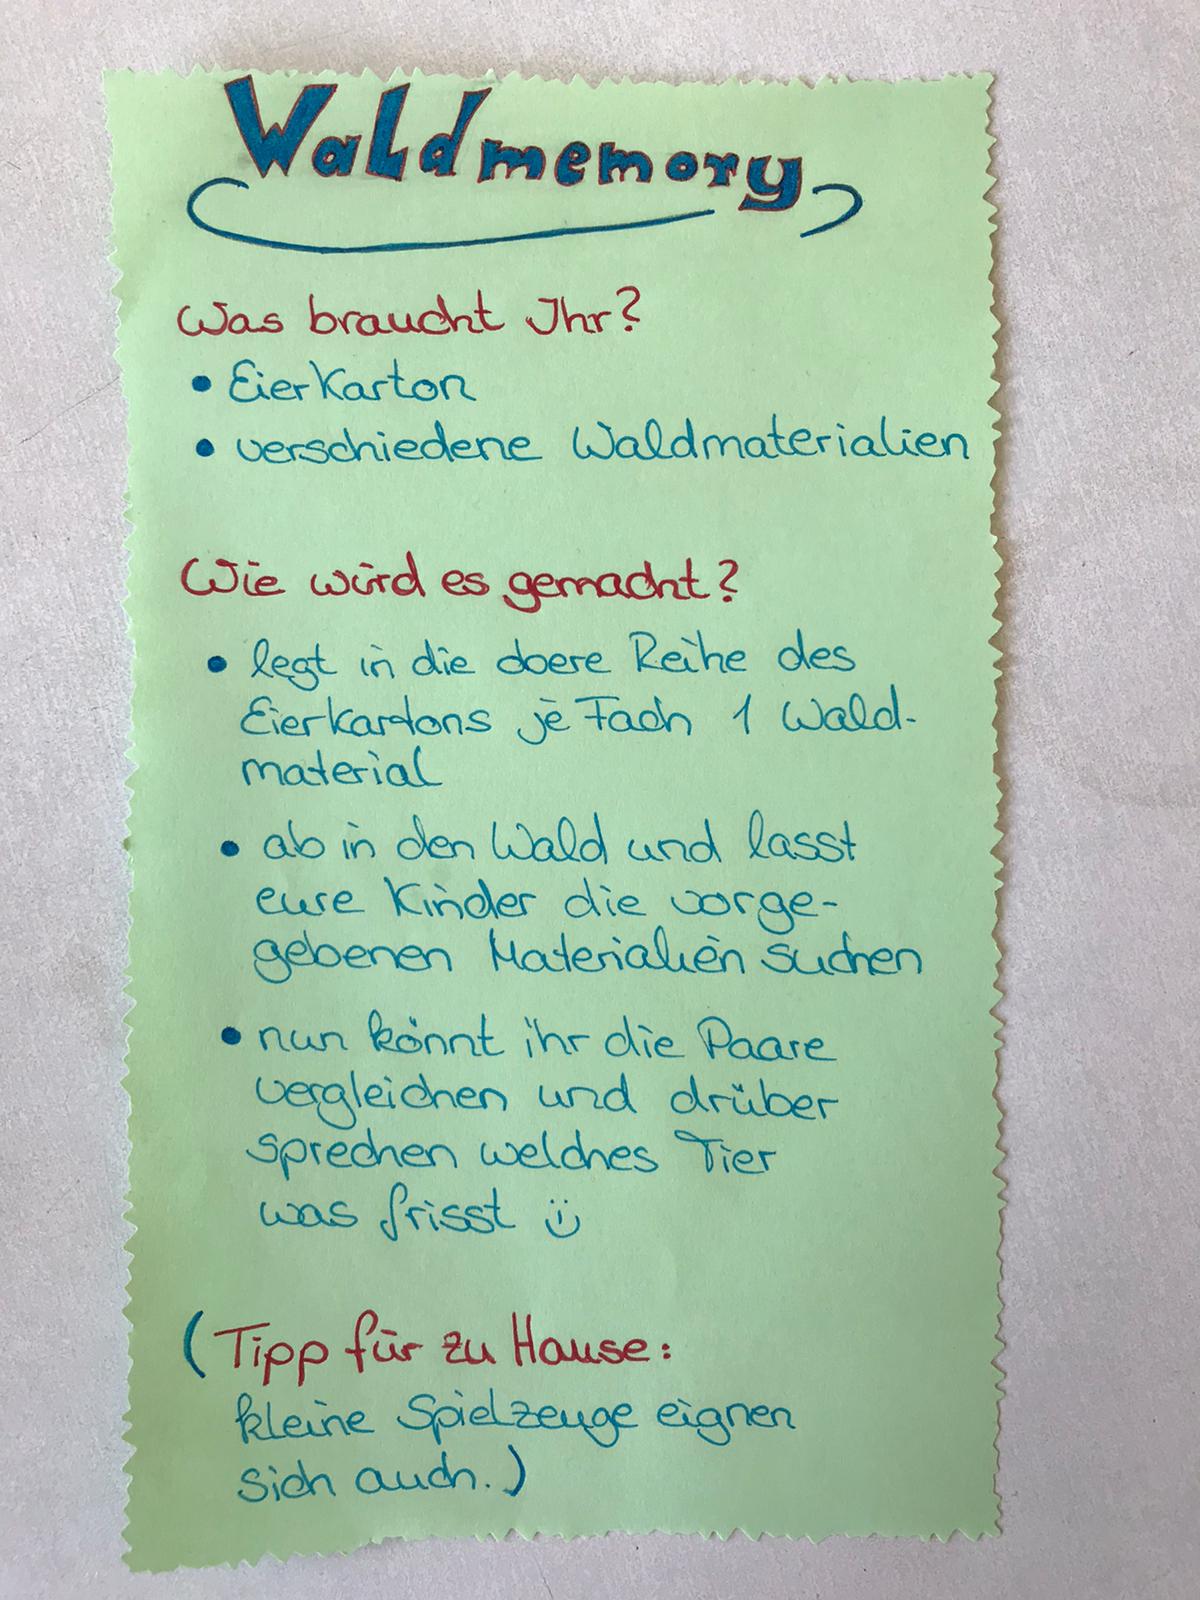 Waldmemory
Was braucht Ihr?
• Eierkarton
• verschiedene Waldmaterialien
Wie wird es gemacht?
• legt in die obere Reihe des
Eierkartons je Fach 1 Wald-
material
• ab in den Wald und lasst
eure Kinder die vorge-
gebenen Materialien suchen
• nun könnt ihr die Paare
vergleichen und drüber
sprechen welches Tier
was frisst ü
(Tipp für zu Hause:
kleine Spielzeuge eignen
sich auch.)